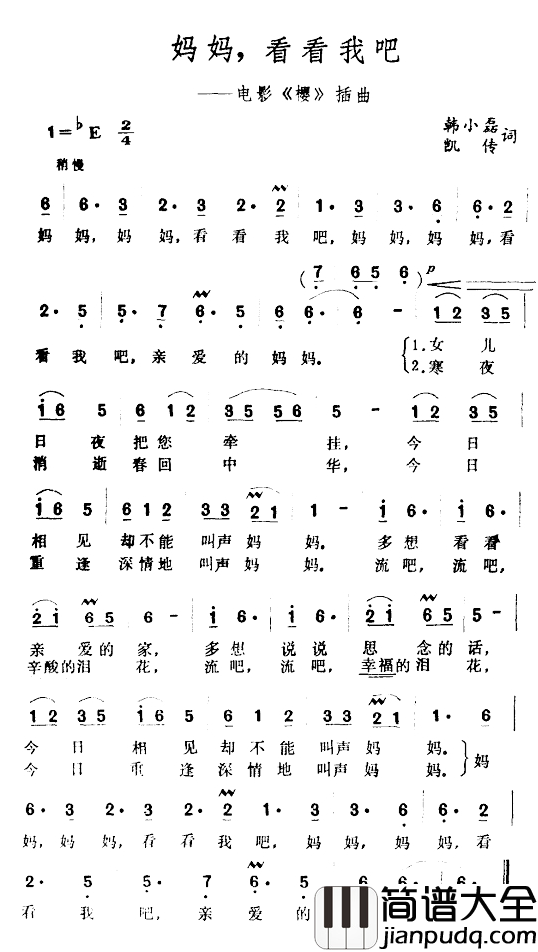 妈妈，看看我吧
——电影《樱》插曲
1=♭E 2/4
韩小磊
凯 传 词
稍慢
6 6· 3 2· 3 2· 2 1· 3 3· 6 6·2
妈 妈，妈 妈，看 看 我 吧，妈 妈，妈 妈，看
(7 6 5 6·) p
2· 5 5· 7 6· 5 6 6· 6· - 1 2 3 5
看 我 吧，亲 爱 的 妈 妈。 {1.女 儿
2.寒 夜
i 6 5 6 1 2 3 5 5 6 5 - 1 2 3 5
日 夜 把 您 牵 挂，今 日
消 逝 春 回 中 华，今 日
i 6 5 6 1 2 3 3 2 1 - i 6· i 6·
相 见 却不能 叫声 妈 妈。多 想 看 看
重 逢 深情地 叫声 妈 妈。流 吧，流 吧，
2 i 6 5 6· - i 6· i 6· 2 i 6 5 6·
亲 爱 的 家，多 想 说 说 思 念 的 话，
辛酸的泪 花，流 吧，流 吧，幸福的泪 花，
1 2 3 5 i 6 5 6 1 2 3 3 2 1 1· 6
今 日 相 见 却 不 能 叫 声 妈 妈。} 妈
今 日 重 逢 深 情 地 叫 声 妈 妈。
6· 3 2· 3 2· 2 1· 3 3· 6 6·2
妈，妈 妈，看 看 我 吧，妈 妈，妈 妈，看
2· 5 5· 7 6· 5
看 我 吧，亲 爱 的
简谱大全
jianpudq.com